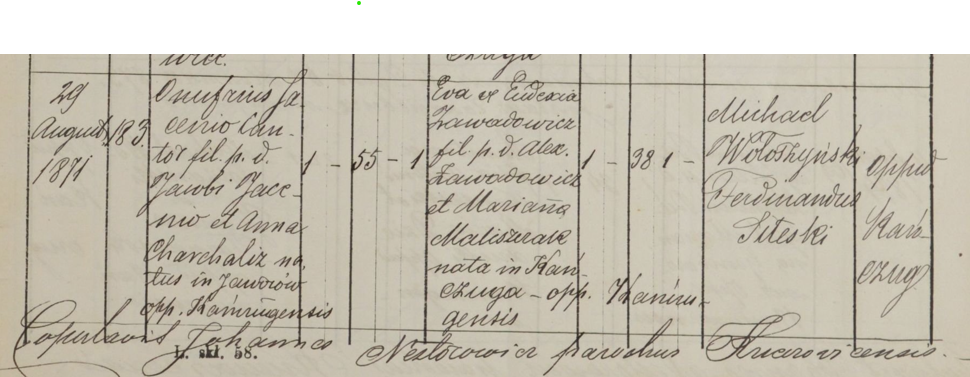 wice.
Czuga
29
August
1871
183.
Onufrius Ja
cenio Can-
tor fil. p. d.
Jacobi Jace-
nio et Anna
Charchaliz na-
tus in Jaworów
opp. Kańczugensis
1 - 55 - 1
Eva et Eudoxia
Zawadowicz
fil. p. d. Alex.
Zawadowicz
et Marianna
Maliszczak
nata in Kań-
czuga - opp. Kańczu-
gensis
1 - 38 1 -
Michael
Wołoszyński
Ferdinandus
Siteski
oppid
Kań-
czuga
Copulavit Johannes Nestorowicz parochus
L. skł. 58.